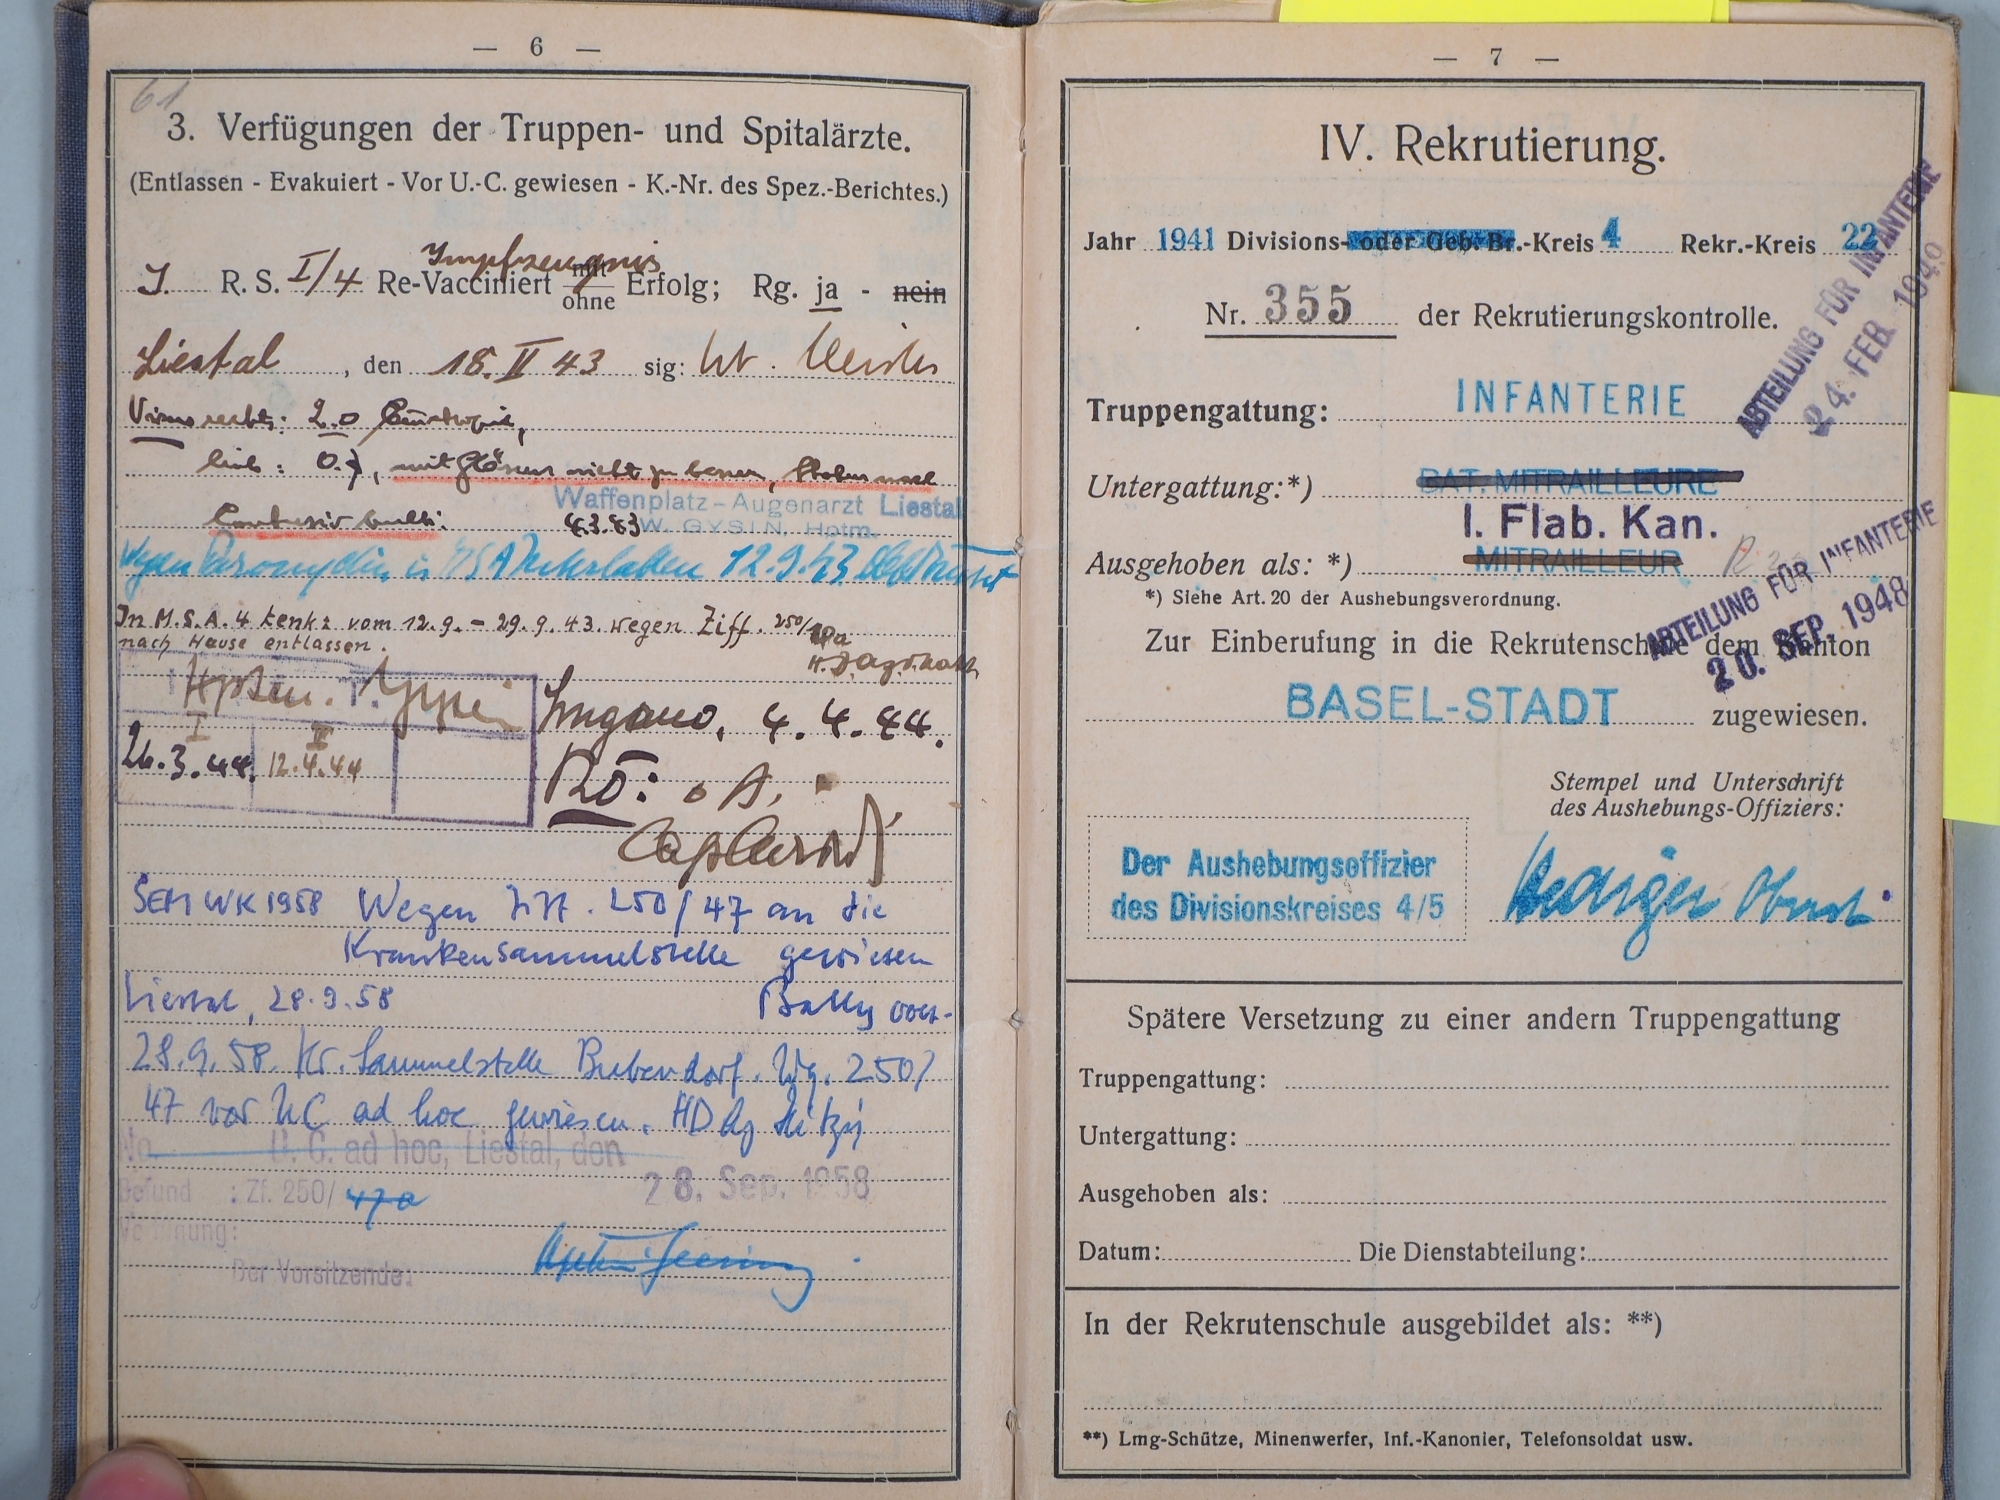 — 6 —
61
3. Verfügungen der Truppen- und Spitalärzte.
(Entlassen - Evakuiert - Vor U.-C. gewiesen - K.-Nr. des Spez.-Berichtes.)
Impfzeugnis
I. R. S. I/4 Re-Vacciniert mit/ohne Erfolg; Rg. ja - nein
Liestal, den 18. II 43 sig: Lt.
Visus rechts: 2.0
links: 0. , mit Gläsern nicht zu bessern,
Contusio bulbi. 4.3.43
Waffenplatz-Augenarzt Liestal
W. GYSIN, Hptm.
wegen in MSA 12.9.43
In M.S.A. 4 Lenk vom 12.9. - 29.9.43. wegen Ziff. 250/
nach Hause entlassen.
Hptm.
I II
26.3.44. 12.4.44
Lugano, 4.4.44.
Rö: o A.
Cap
WK 1958 Wegen Ziff. 250/47 an die
Krankensammelstelle gewiesen
Liestal, 28.9.58
28.9.58. Kr. Sammelstelle Bubendorf. Wg. 250/
47 vor UC ad hoc gewiesen. HD
No. U. C. ad hoc, Liestal, den
28. Sep. 1958
Befund : Zf. 250/ 47a
Verfügung:
Der Vorsitzende:
— 7 —
IV. Rekrutierung.
Jahr 1941 Divisions- oder Geb. Br.-Kreis 4 Rekr.-Kreis 22
ABTEILUNG FÜR INFANTERIE
24. FEB. 1949
Nr. 355 der Rekrutierungskontrolle.
Truppengattung: INFANTERIE
Untergattung:*) BAT. MITRAILLEURE
I. Flab. Kan.
Ausgehoben als: *) MITRAILLEUR
ABTEILUNG FÜR INFANTERIE
20. SEP. 1948
*) Siehe Art. 20 der Aushebungsverordnung.
Zur Einberufung in die Rekrutenschule dem Kanton
BASEL-STADT zugewiesen.
Stempel und Unterschrift
des Aushebungs-Offiziers:
Der Aushebungsoffizier
des Divisionskreises 4/5
Oberst
Spätere Versetzung zu einer andern Truppengattung
Truppengattung:
Untergattung:
Ausgehoben als:
Datum: Die Dienstabteilung:
In der Rekrutenschule ausgebildet als: **)
**) Lmg-Schütze, Minenwerfer, Inf.-Kanonier, Telefonsoldat usw.